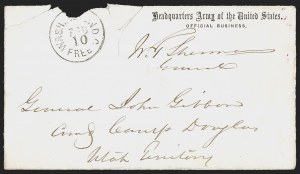 Headquarters Army of the United States.
OFFICIAL BUSINESS.
WASH D.C.
10
FREE
W T Sherman
General
General John Gibbon
Camp Douglas
Utah Territory